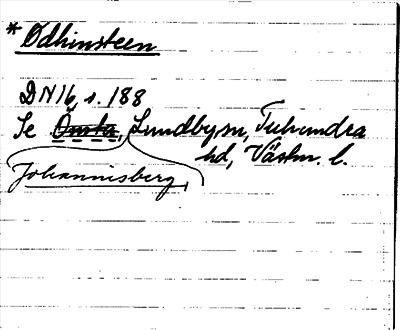 * Odhinsteen
DN 16, s. 188
Se Önsta, Lundby sn, Tuhundra
hd, Västm. l.
Johannisberg,